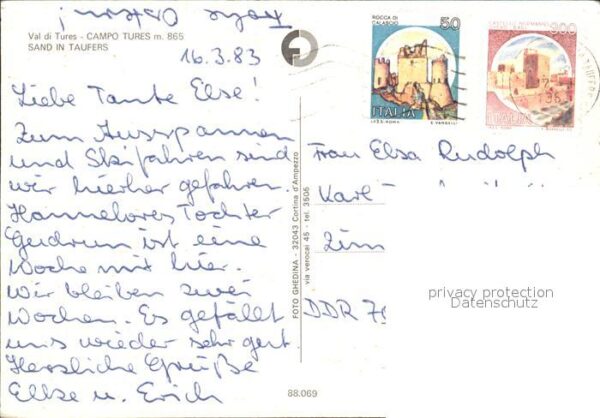 Frohe Ostern!
Val di Tures - CAMPO TURES m. 865
SAND IN TAUFERS
16.3.83
Liebe Tante Else!
Zum Ausspannen
und Skifahren sind
wir hierher gefahren.
Hannelores Tochter
Gudrun ist eine
Woche mit hier.
Wir bleiben zwei
Wochen. Es gefällt
uns wieder sehr gut.
Herzliche Grüße
Elke u. Erich
FOTO GHEDINA - 32043 Cortina d'Ampezzo
via verocai 45 - tel. 3505
88.069
ROCCA DI
CALASCIO
50
ITALIA
I.P.Z.S. ROMA
CASTELLO NORMANNO
300
ITALIA
I.P.Z.S. ROMA
Frau Elsa Rudolph
Karl
Zim
DDR
privacy protection
Datenschutz